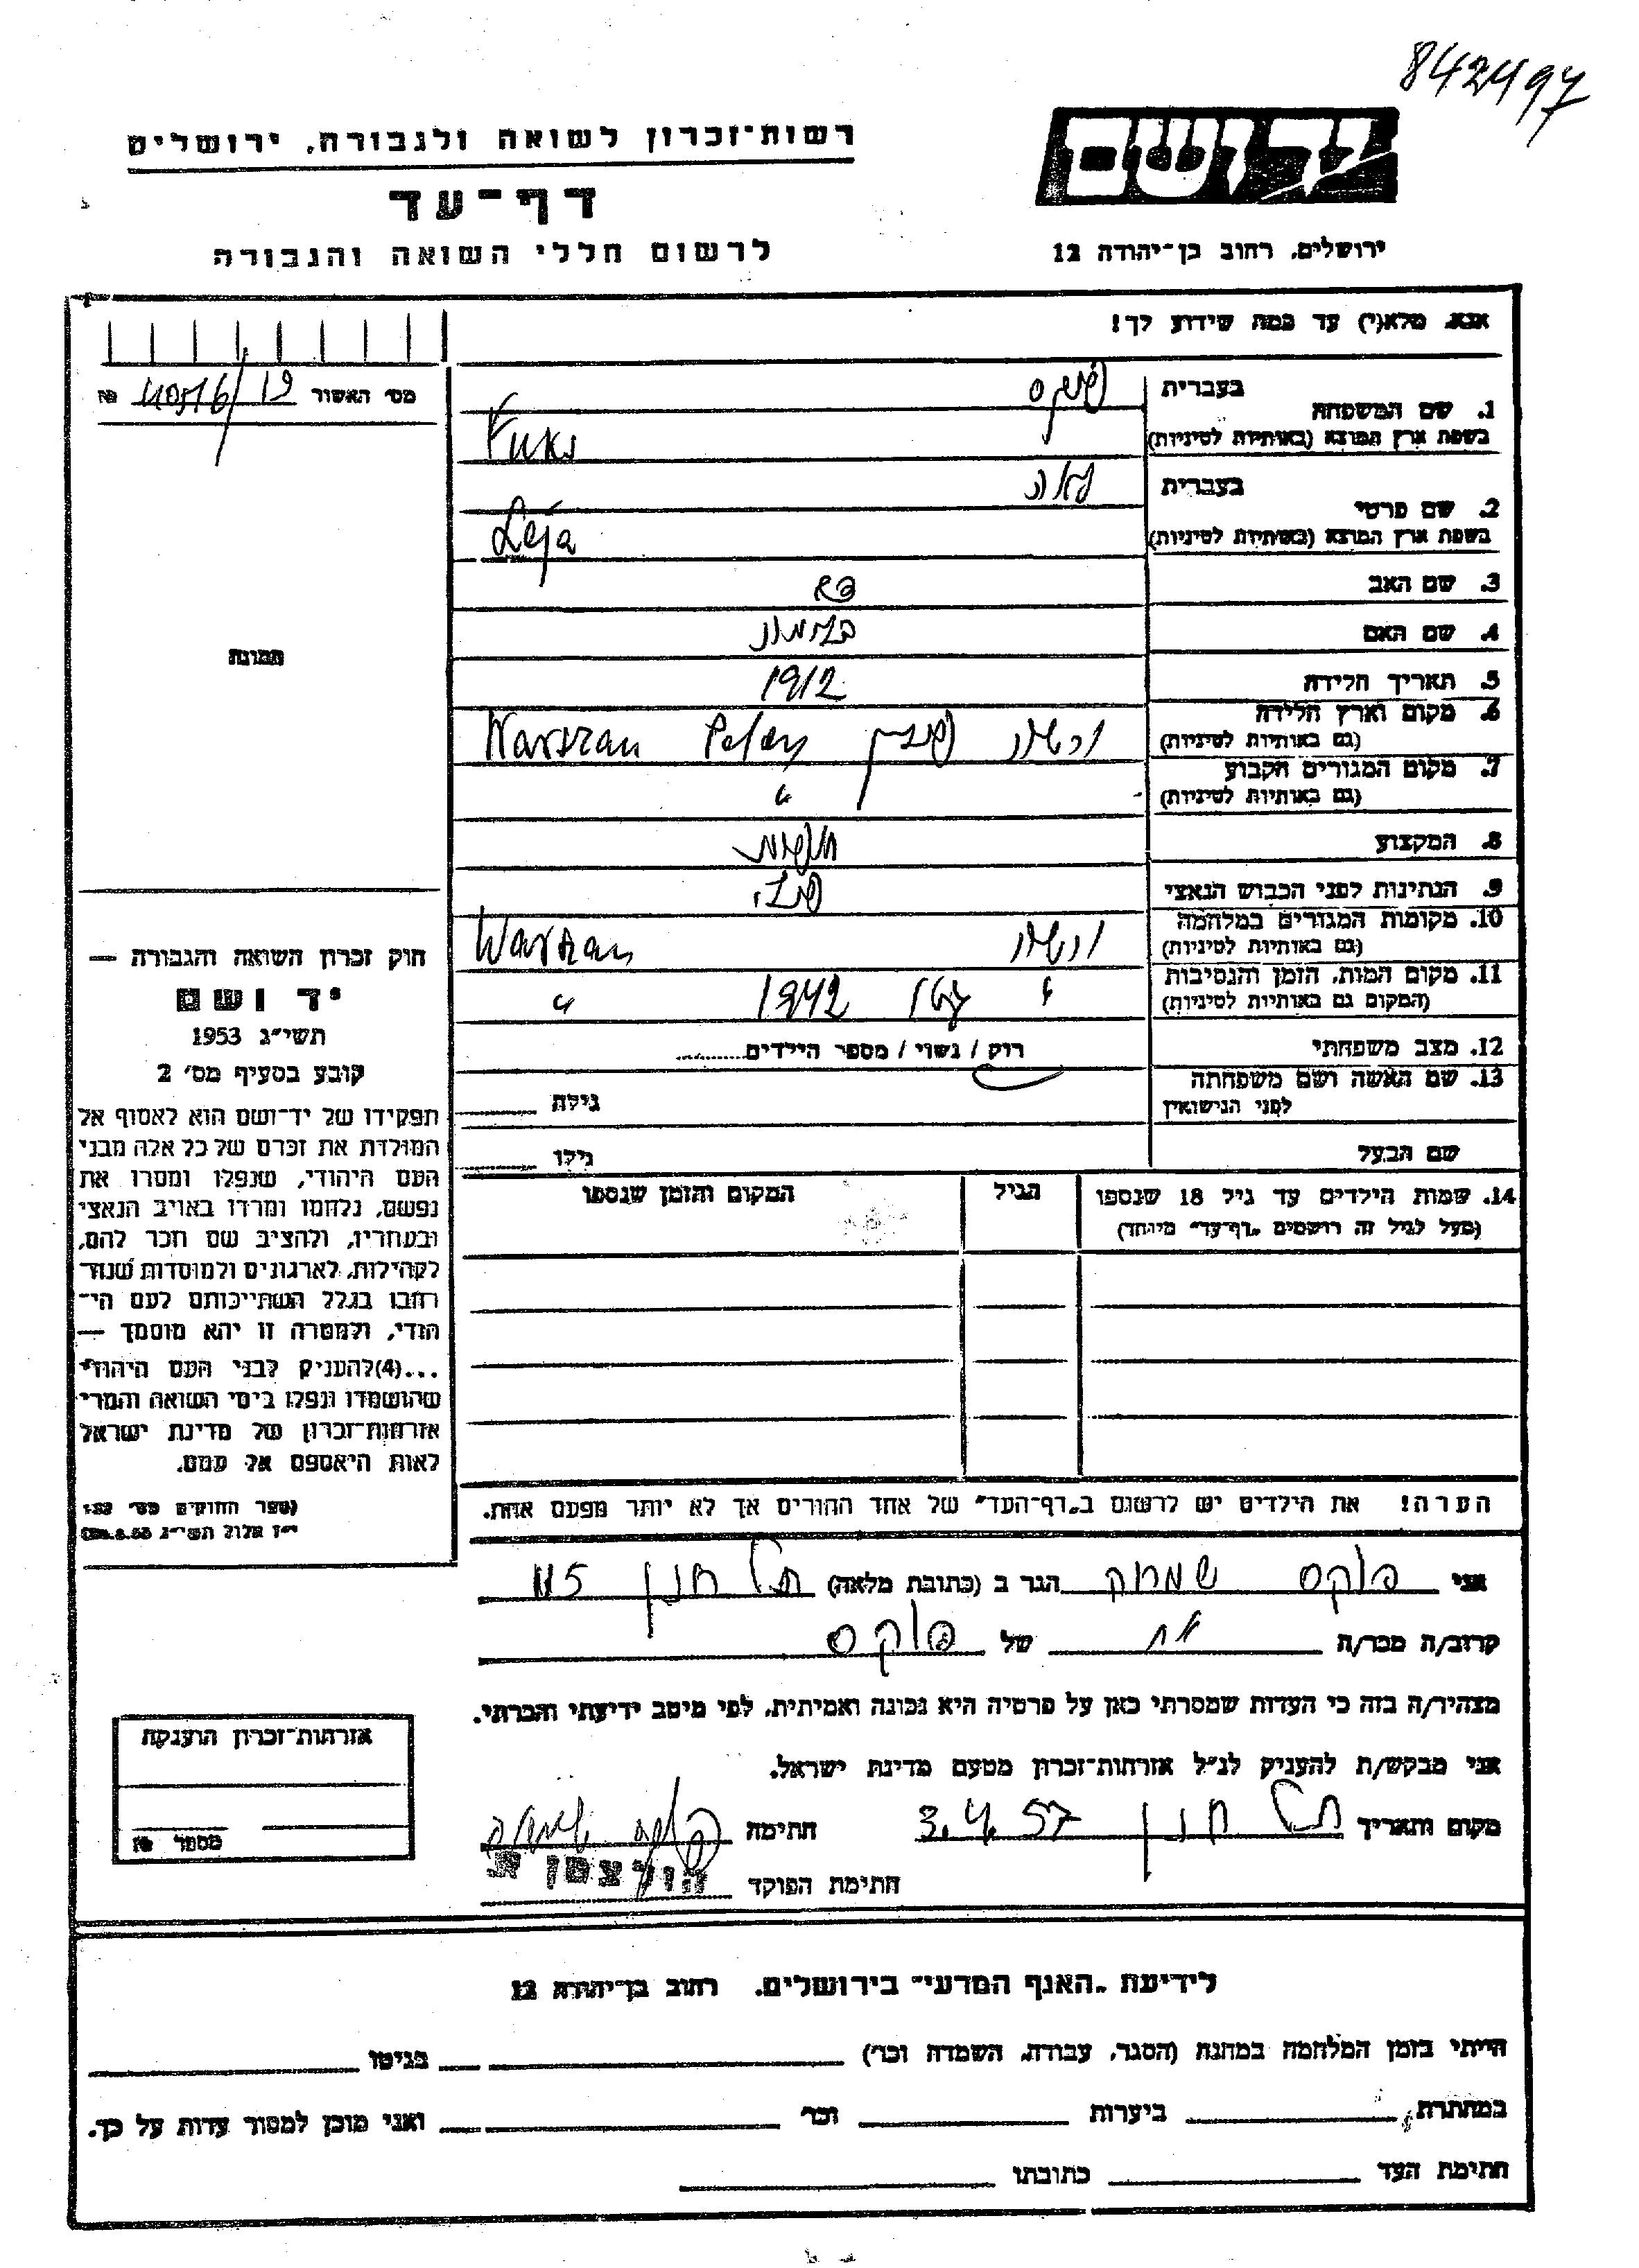 842497
יד ושם
ירושלים, רחוב בן־יהודה 12
רשות־זכרון לשואה ולגבורה, ירושלים
דף־עד
לרשום חללי השואה והגבורה
אנא, מלא(י) עד כמה שידוע לך!
מס׳ האשור №
1. שם המשפחה
בעברית פוקס
בשפת ארץ המוצא (באותיות לטיניות) Fuks
2. שם פרטי
בעברית לאה
בשפת ארץ המוצא (באותיות לטיניות) Leja
3. שם האב
4. שם האם
5. תאריך הלידה 1912
6. מקום וארץ הלידה
(גם באותיות לטיניות) ורשה פולין Polen Warszau
7. מקום המגורים הקבוע
(גם באותיות לטיניות) "
8. המקצוע
9. הנתינות לפני הכבוש הנאצי פולני
10. מקומות המגורים במלחמה
(גם באותיות לטיניות) ורשה Warszau
11. מקום המות, הזמן והנסיבות
(המקום גם באותיות לטיניות) " 1942 "
12. מצב משפחתי רוק / נשוי / מספר הילדים
13. שם האשה ושם משפחתה
לפני הנישואין גילה
שם הבעל גילו
14. שמות הילדים עד גיל 18 שנספו הגיל המקום והזמן שנספו
(מעל לגיל זה רושמים „דף־עד" מיוחד)
תמונה
חוק זכרון השואה והגבורה —
יד ושם
תשי״ג 1953
קובע בסעיף מס׳ 2
תפקידו של יד־ושם הוא לאסוף אל
המולדת את זכרם של כל אלה מבני
העם היהודי, שנפלו ומסרו את
נפשם, נלחמו ומרדו באויב הנאצי
ובעוזריו, ולהציב שם וזכר להם,
לקהילות, לארגונים ולמוסדות שנח־
רבו בגלל השתייכותם לעם הי־
הודי, ולמטרה זו יהא מוסמך —
...(4)להעניק לבני העם היהודי
שהושמדו ונפלו בימי השואה והמרי
אזרחות־זכרון של מדינת ישראל
לאות היאספם אל עמם.
(ספר החוקים מס׳ 132
י״ז אלול תשי״ג 28.8.53)
הערה! את הילדים יש לרשום ב„דף־העד" של אחד ההורים אך לא יותר מפעם אחת.
אני פוקס הגר ב (כתובת מלאה) תל חנן
קרוב/ה מכר/ה אח של פוקס
מצהיר/ה בזה כי העדות שמסרתי כאן על פרטיה היא נכונה ואמיתית, לפי מיטב ידיעתי והכרתי.
אני מבקש/ת להעניק לנ״ל אזרחות־זכרון מטעם מדינת ישראל.
מקום ותאריך תל חנן 3.4.57 חתימה
חתימת הפוקד הולצמן א.
אזרחות־זכרון הוענקה
מספר №
לידיעת „האגף המדעי" בירושלים, רחוב בן־יהודה 12
הייתי בזמן המלחמה במחנה (הסגר, עבודה, השמדה וכו׳) בגיטו
במחתרת ביערות וכו׳ ואני מוכן למסור עדות על כך.
חתימת העד כתובתו